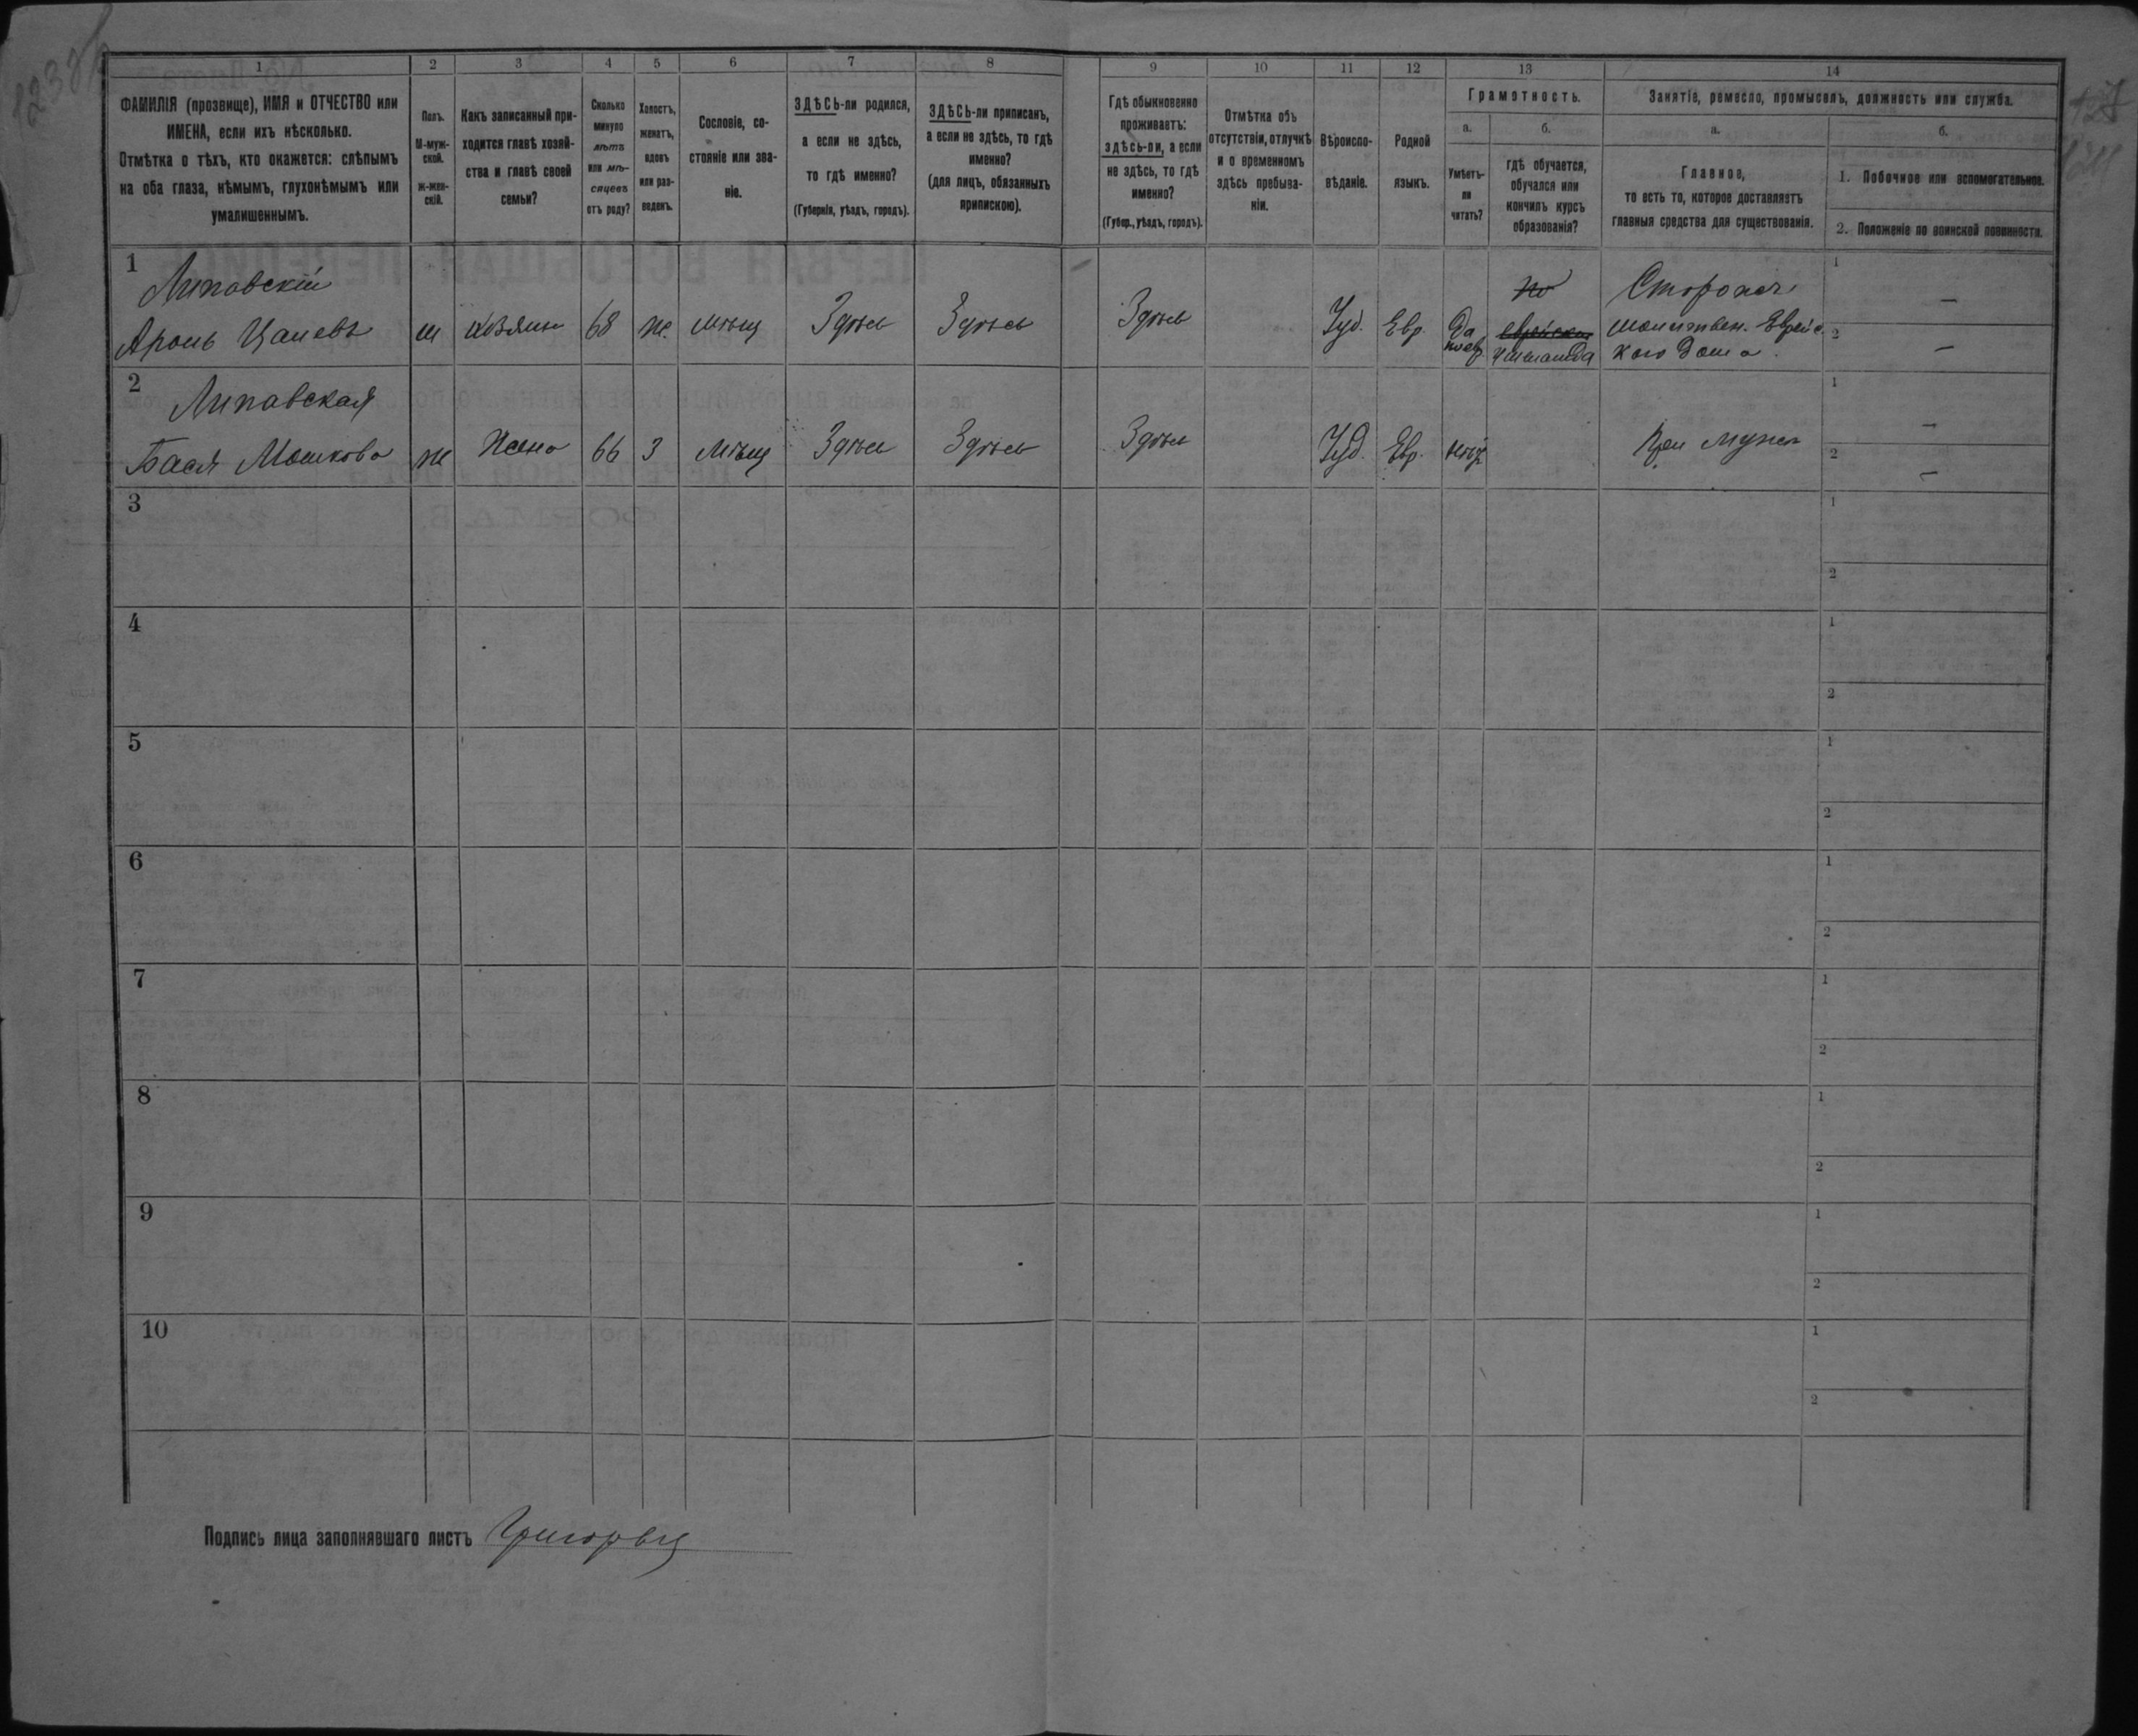 1 2 3 4 5 6 7 8 9 10 11 12 13 14
ФАМИЛІЯ (прозвище), ИМЯ и ОТЧЕСТВО или
ИМЕНА, если ихъ нѣсколько.
Отмѣтка о тѣхъ, кто окажется: слѣпымъ
на оба глаза, нѣмымъ, глухонѣмымъ или
умалишеннымъ.
Полъ.
М-муж-
ской.
Ж-жен-
скій.
Какъ записанный при-
ходится главѣ хозяй-
ства и главѣ своей
семьи?
Сколько
минуло
лѣтъ
или мѣ-
сяцевъ
отъ роду?
Холостъ,
женатъ,
вдовъ
или раз-
веденъ.
Сословіе, со-
стояніе или зва-
ніе.
ЗДѢСЬ-ли родился,
а если не здѣсь,
то гдѣ именно?
(Губернія, уѣздъ, городъ).
ЗДѢСЬ-ли приписанъ,
а если не здѣсь, то гдѣ
именно?
(для лицъ, обязанныхъ
припискою).
Гдѣ обыкновенно
проживаетъ:
здѣсь-ли, а если
не здѣсь, то гдѣ
именно?
(Губер., уѣздъ, городъ).
Отмѣтка объ
отсутствіи, отлучкѣ
и о временномъ
здѣсь пребыва-
ніи.
Вѣроиспо-
вѣданіе.
Родной
языкъ.
Грамотность.
а.
Умѣетъ-
ли
читать?
б.
гдѣ обучается,
обучался или
кончилъ курсъ
образованія?
Занятіе, ремесло, промыселъ, должность или служба.
а.
Главное,
то есть то, которое доставляетъ
главныя средства для существованія.
б.
1. Побочное или вспомогательное.
2. Положеніе по воинской повинности.
1 Липовскій
Аронъ м хозяинъ 68 ж. мѣщ Здѣсь Здѣсь Здѣсь Іуд. Евр. Да Сторожъ
молитвен. Еврейс
каго дома.
1 —
2 —
2 Липовская
Бася Мошкова ж Жена 66 З мѣщ Здѣсь Здѣсь Здѣсь Іуд. Евр. нѣтъ При мужѣ
1 —
2 —
3 1
2
4 1
2
5 1
2
6 1
2
7 1
2
8 1
2
9 1
2
10 1
2
Подпись лица заполнявшаго листъ